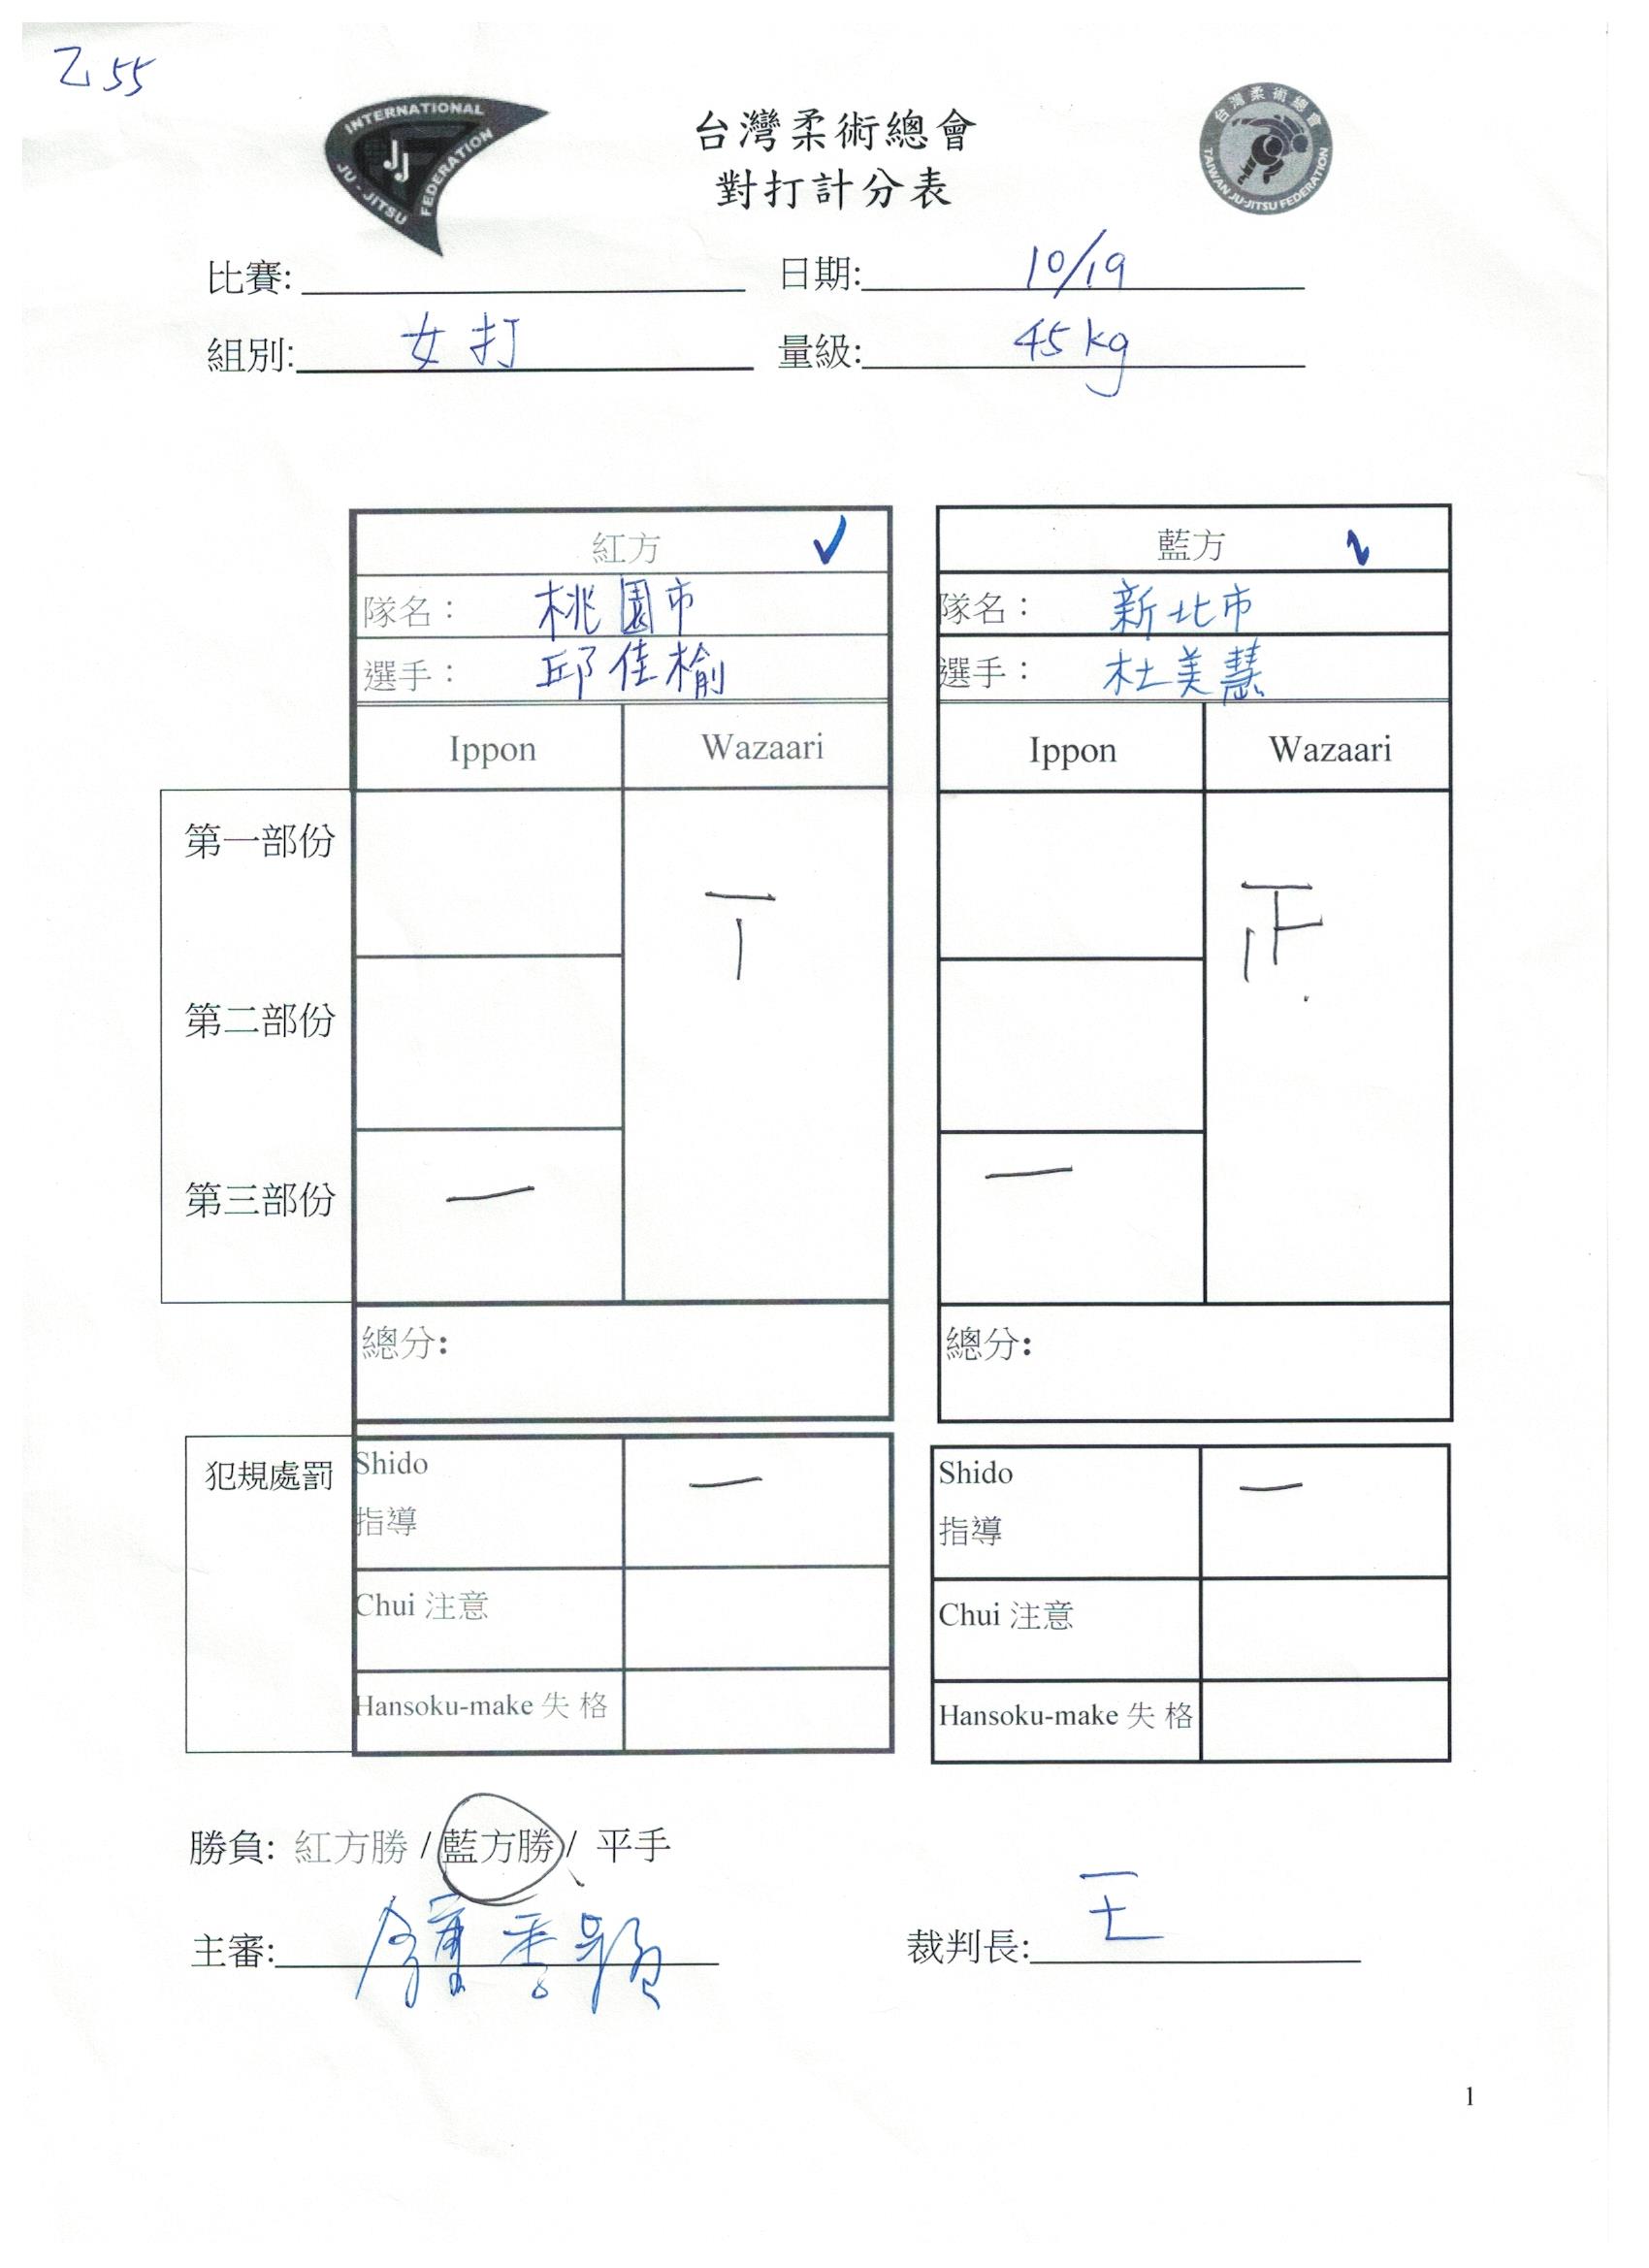 乙55
INTERNATIONAL JU-JITSU FEDERATION
JJ
台灣柔術總會
TAIWAN JU-JITSU FEDERATION
台灣柔術總會
對打計分表
比賽: 日期: 10/19
組別: 女打 量級: 45kg
紅方 ✓ 藍方
隊名： 桃園市 隊名： 新北市
選手： 邱佳榆 選手： 杜美慧
Ippon Wazaari Ippon Wazaari
第一部份
第二部份
第三部份 一 一
總分: 總分:
犯規處罰 Shido 一 Shido 一
指導 指導
Chui 注意 Chui 注意
Hansoku-make 失 格 Hansoku-make 失 格
勝負: 紅方勝 / 藍方勝 / 平手
主審: 裁判長: 王
1